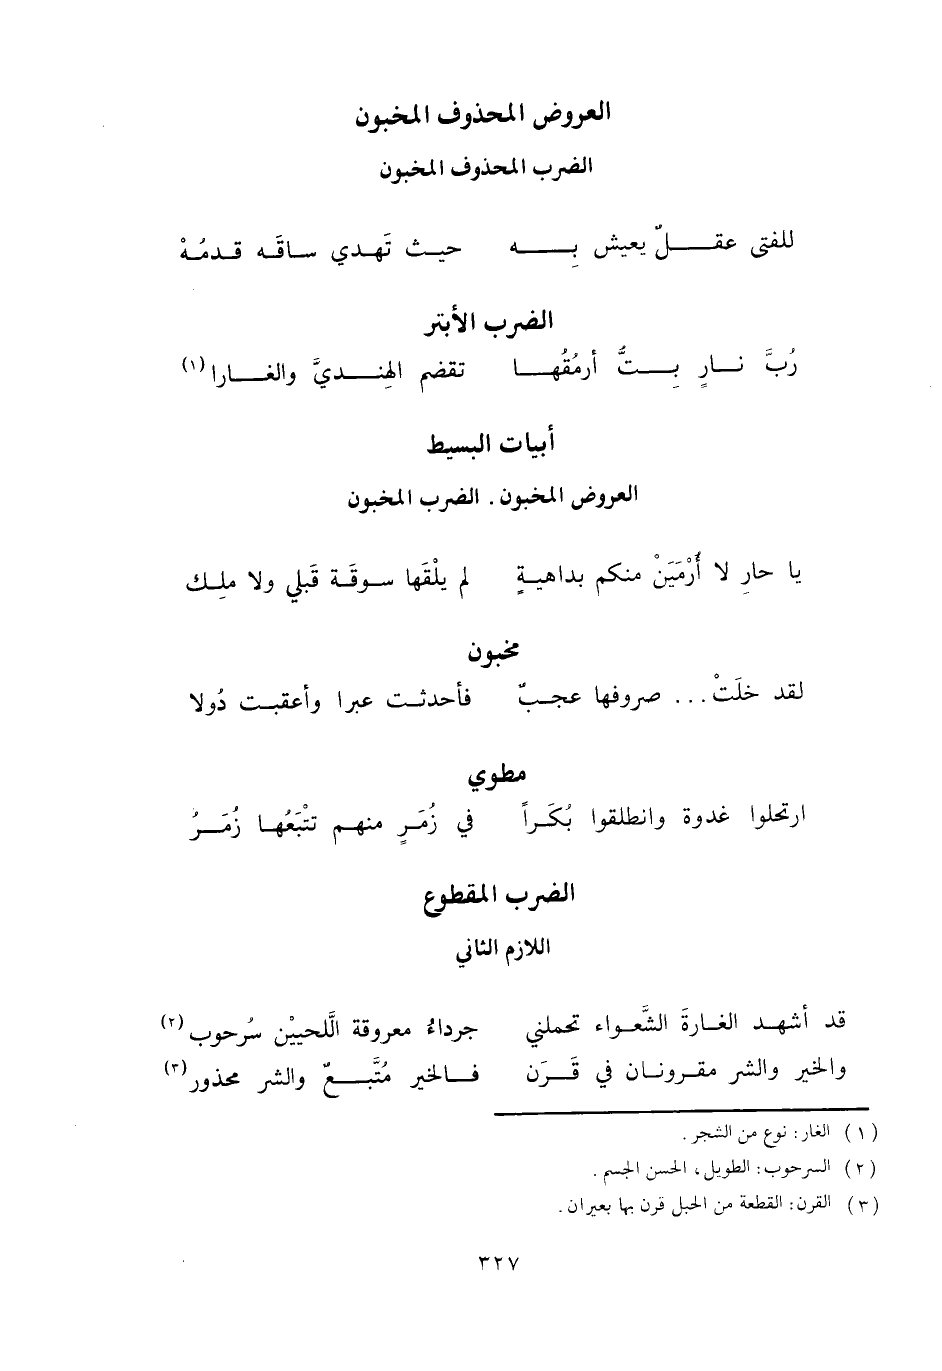 العروض المحذوف المخبون
الضرب المحذوف المخبون
للفتى عقـــلٌ يعيش بِـــه حيـث تَهـدي سـاقَـه قـدمُهْ
الضرب الأبتر
رُبَّ نـارٍ بِـتُّ أرمُقُهـا تقضم الهِنـديَّ والغـارا(١)
أبيات البسيط
العروض المخبون . الضرب المخبون
يا حارِ لا أُرْمَيَنْ منكم بداهيـةٍ لم يلْقَها سـوقَـة قَبلي ولا ملِـك
مخبون
لقد خلَتْ... صروفها عجـبٌ فأحدثـت عبرا وأعقبـت دُولا
مطوي
ارتحلوا غدوة وانطلقوا بُكَـراً في زُمَـرٍ منهـم تتْبَعُهـا زُمَـرُ
الضرب المقطوع
اللازم الثاني
قد أشهـد الغـارةَ الشَّعـواء تحملني جرداءُ معروقة اللَّحييْن سُرحوب(٢)
والخير والشر مقـرونـان في قَـرَن فـالخير مُتَّبـعٌ والشر محذور(٣)
(١) الغار: نوع من الشجر .
(٢) السرحوب: الطويل، الحسن الجسم .
(٣) القرن: القطعة من الحبل قرن بها بعيران .
٣٢٧